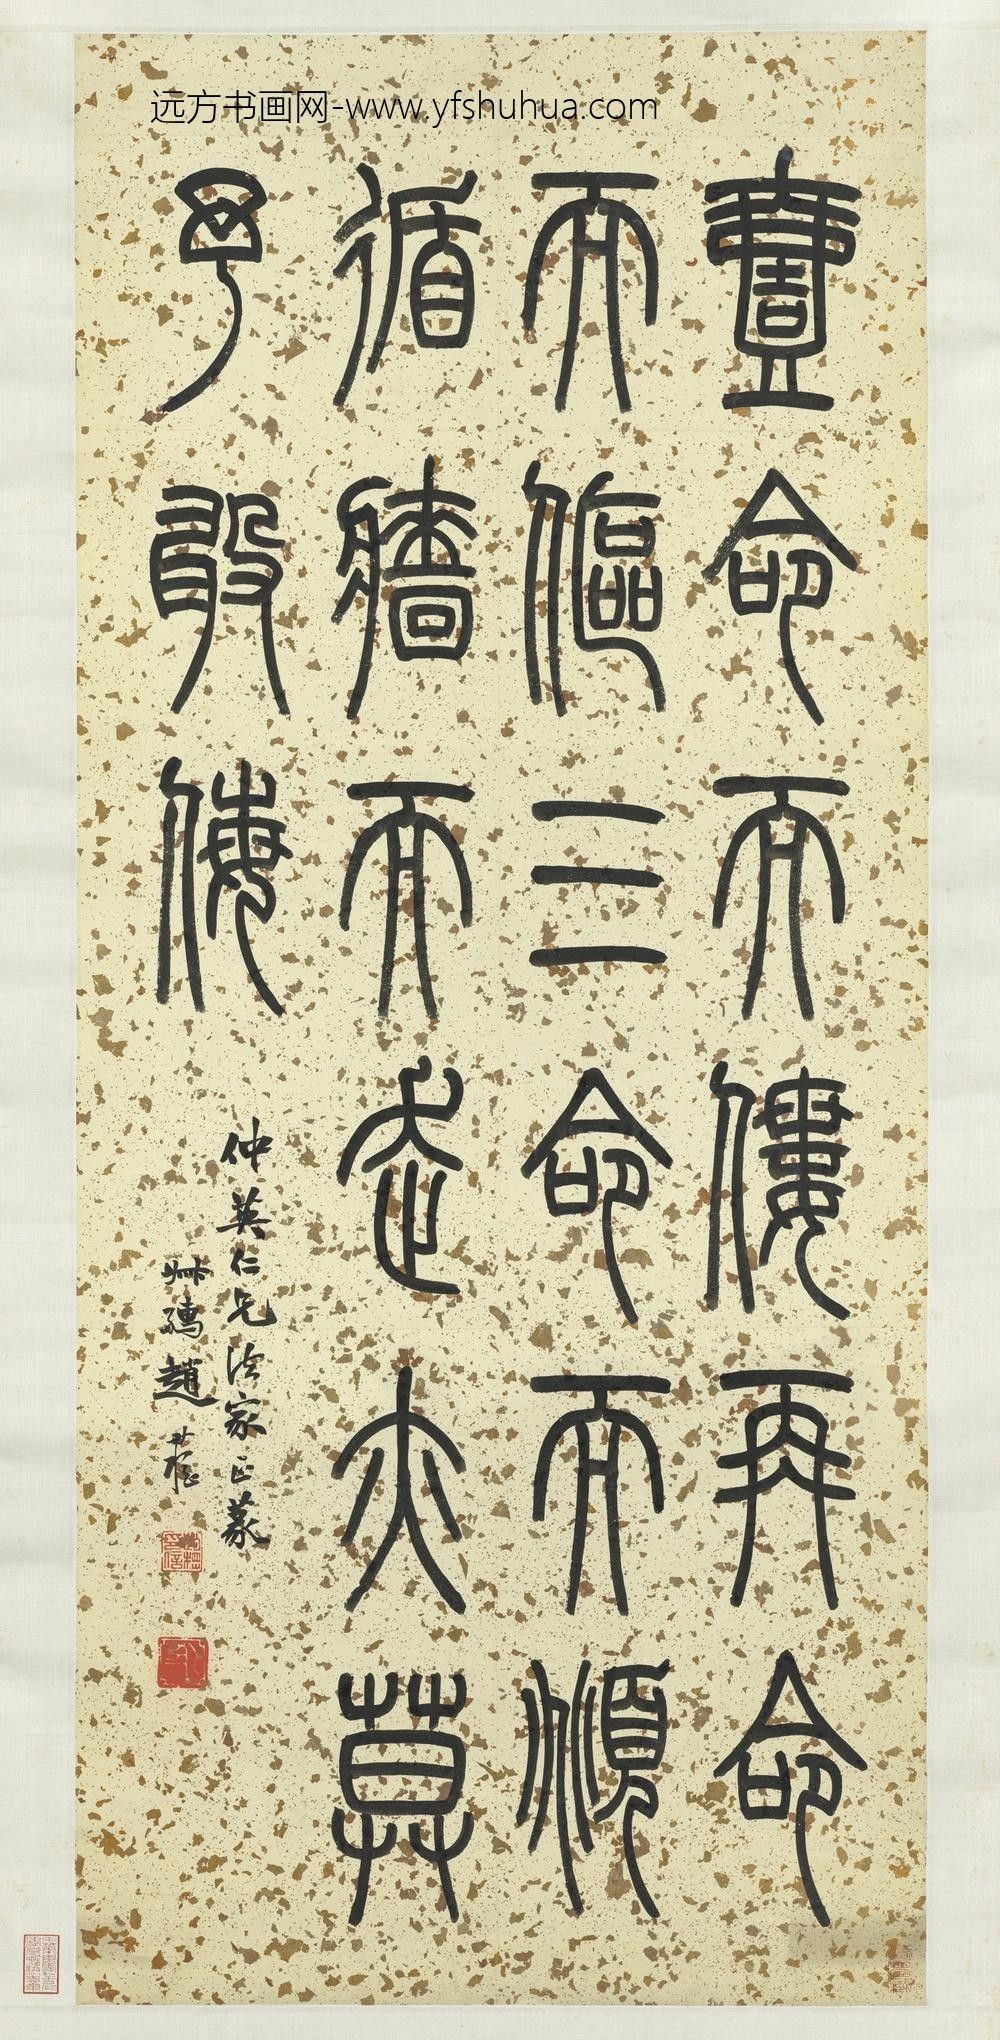 远方书画网-www.yfshuhua.com
壹命而僂再命
而傴三命而頫
循牆而走亦莫
予敢侮
仲英仁兄法家正篆
叔孺趙時棡